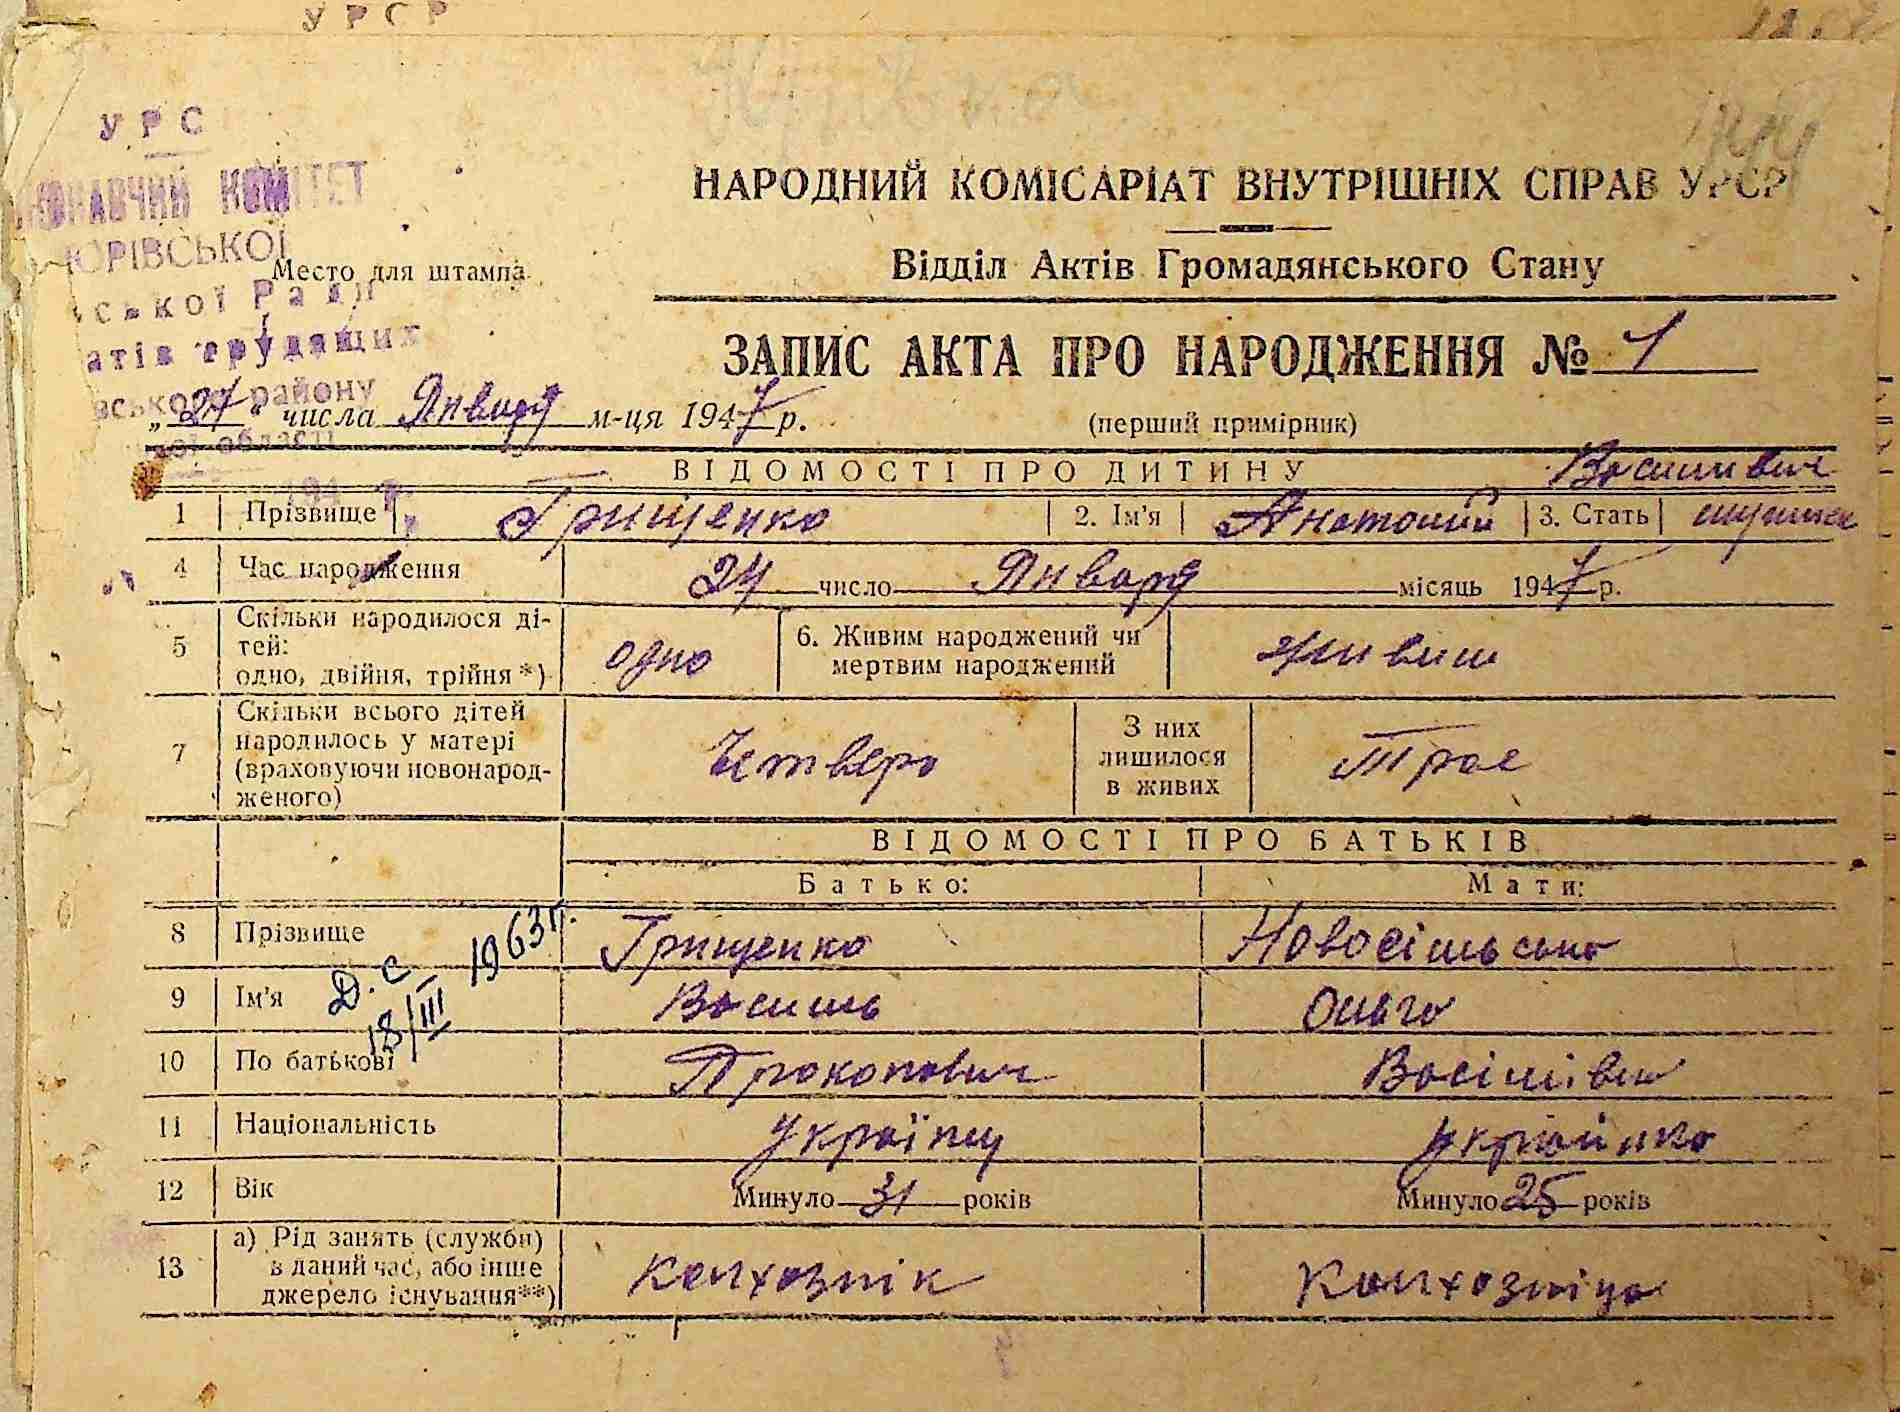 УРСР
УРС
НАРОДНИЙ КОМІСАРІАТ ВНУТРІШНІХ СПРАВ УРСР
КОМІТЕТ
Відділ Актів Громадянського Стану
Место для штампа
Ради
трудящих
ЗАПИС АКТА ПРО НАРОДЖЕННЯ № 1
району
„27" числа Января м-ця 1947 р. (перший примірник)
області
ВІДОМОСТІ ПРО ДИТИНУ Васильович
1 Прізвище Грищенко 2. Ім'я Анатолій 3. Стать
4 Час народження 24 число Января місяць 1947 р.
5 Скільки народилося ді-
тей:
одно, двійня, трійня *) одно 6. Живим народжений чи
мертвим народжений живим
7 Скільки всього дітей
народилось у матері
(враховуючи новонарод-
женого) Четверо З них
лишилося
в живих Трое
ВІДОМОСТІ ПРО БАТЬКІВ
Батько: Мати:
8 Прізвище Грищенко Новосільська
Д. С 18/III 1963 г.
9 Ім'я Василь Ольга
10 По батькові Прокопович Васілівна
11 Національність українц українка
12 Вік Минуло 31 років Минуло 25 років
13 а) Рід занять (служби)
в даний час, або інше
джерело існування**) Колхознік Колхозніца